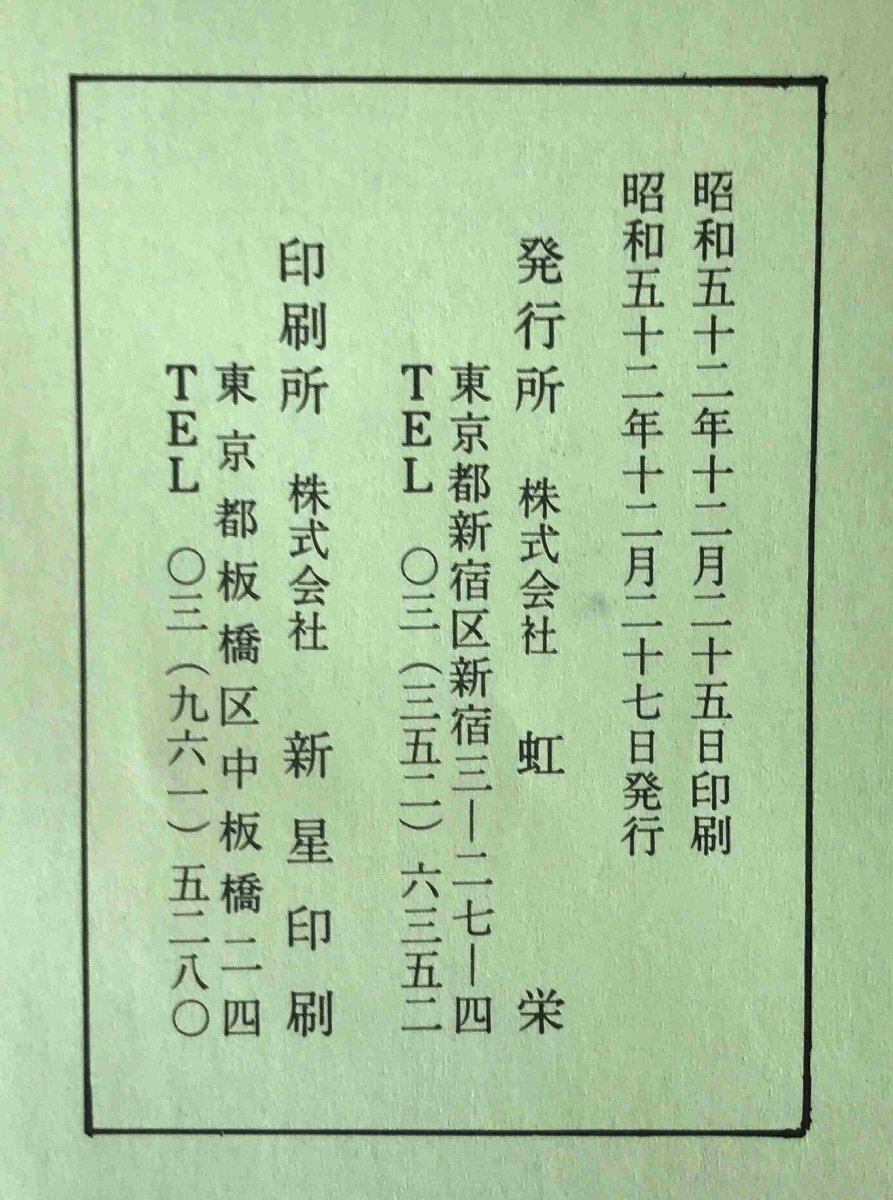 昭和五十二年十二月二十五日印刷
昭和五十二年十二月二十七日発行
発行所 株式会社 虹栄
東京都新宿区新宿三ー二七ー四
TEL 〇三(三五二)六三五二
印刷所 株式会社 新星印刷
東京都板橋区中板橋二一四
TEL 〇三(九六一)五二八〇